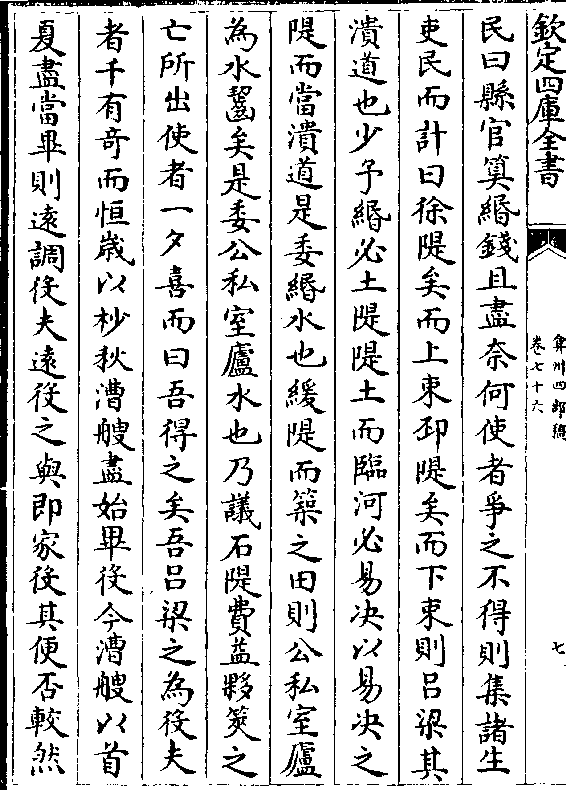 欽定四庫全書
弇州四部稿
卷七十六
七
民曰縣官箕緡錢且盡奈何使者爭之不得則集諸生
吏民而計曰徐隄矣而上束邳隄矣而下束則吕梁其
潰道也少予緡必土隄隄土而臨河必易决以易决之
隄而當潰道是委緡水也緩隄而築之田則公私室廬
為水齧矣是委公私室廬水也乃議石隄費益夥筴之
亡所出使者一夕喜而曰吾得之矣吾吕梁之為役夫
者千有奇而恒歲以杪秋漕艘盡始畢役今漕艘以首
夏盡當畢則遠調役夫遠役之與即家役其便否較然